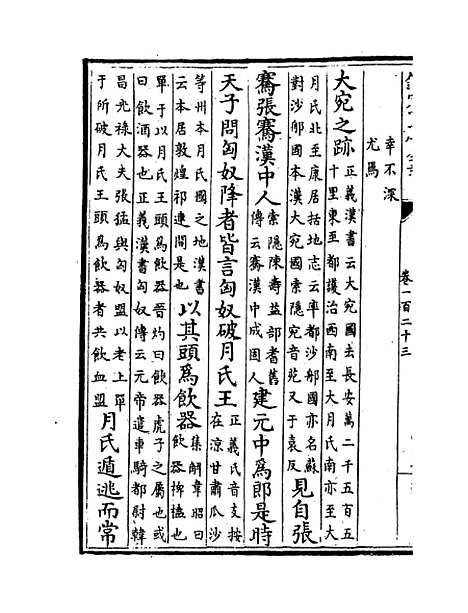 卷一百二十三
幸不深
尤焉
大宛之跡正義漢書云大宛國去長安萬二千五百五
十里東至都護治西南至大月氏南亦至大
月氏北至康居括地志云率都沙𨙻國亦名蘇
對沙𨙻國本漢大宛國索隱宛音菀又于袁反見自張
騫張騫漢中人索隱陳壽益部耆舊
傳云騫漢中成固人建元中為郎是時
天子問匈奴降者皆言匈奴破月氏王正義氏音支按
在涼甘肅瓜沙
等州本月氏國之地漢書
云本居敦煌祁連間是也以其頭為飲器集解韋昭曰
飲器椑榼也
單于以月氏王頭為飲器晉灼曰飲器虎子之屬也或
曰飲酒器也正義漢書匈奴傳云元帝遣車騎都尉韓
昌光祿大夫張猛與匈奴盟以老上單
于所破月氏王頭為飲器者共飲血盟月氏遁逃而常